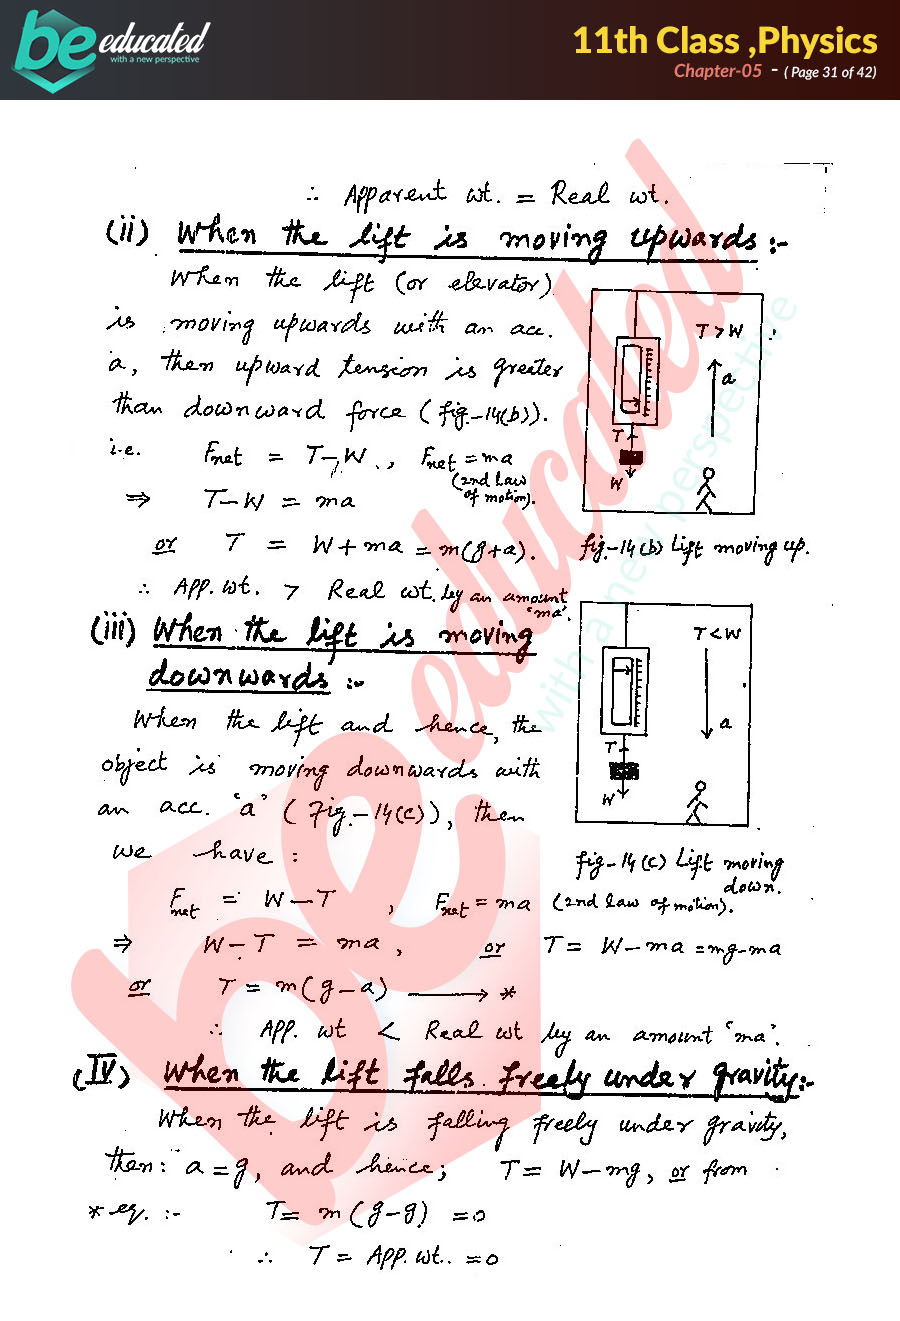 be educated
with a new perspective
11th Class ,Physics
Chapter-05 - ( Page 31 of 42)
∴ Apparent wt. = Real wt.
(ii) When the lift is moving upwards :-
When the lift (or elevator)
is moving upwards with an acc.
a, then upward tension is greater
than downward force (fig.-14(b)).
i.e. Fnet = T-W , Fnet = ma
(2nd law
of motion).
⇒ T-W = ma
or T = W+ma = m(g+a).
∴ App. wt. > Real wt. by an amount
'ma'.
T>W
a
T
W
fig.-14(b) Lift moving up.
(iii) When the lift is moving
downwards :-
When the lift and hence, the
object is moving downwards with
an acc. 'a' (Fig.-14(c)), then
we have :
T<W
a
T
W
fig-14(c) Lift moving
down.
Fnet = W-T , Fnet = ma (2nd law of motion).
⇒ W-T = ma , or T = W-ma = mg-ma
or T = m(g-a) ⟶ *
∴ App. wt < Real wt by an amount 'ma'.
(IV) When the lift falls freely under gravity:-
When the lift is falling freely under gravity,
then: a = g, and hence; T = W-mg, or from
* eq. :- T = m(g-g) = 0
∴ T = App. wt.. = 0
be educated
with a new perspective